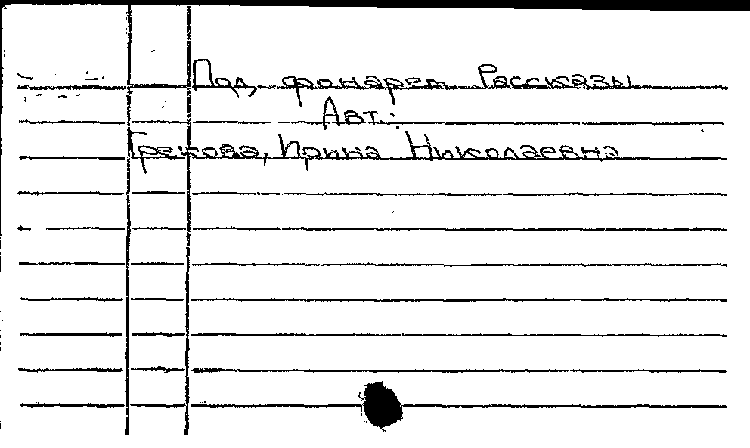 Под фонарем Рассказы
Авт.:
Грекова, Ирина Николаевна